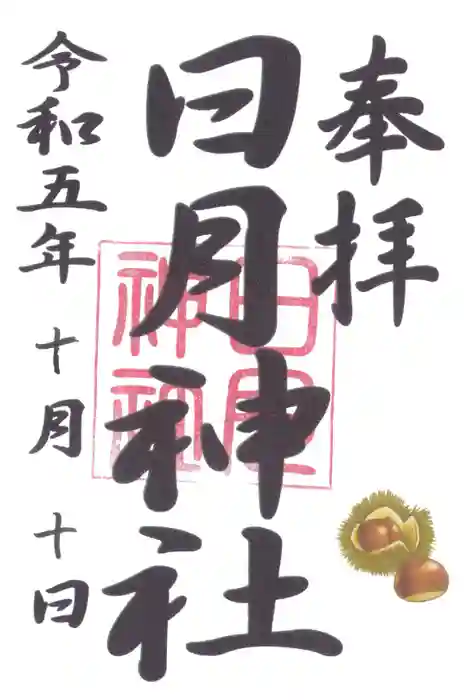 奉拝
日月神社
日月神社
令和五年 十月 十日